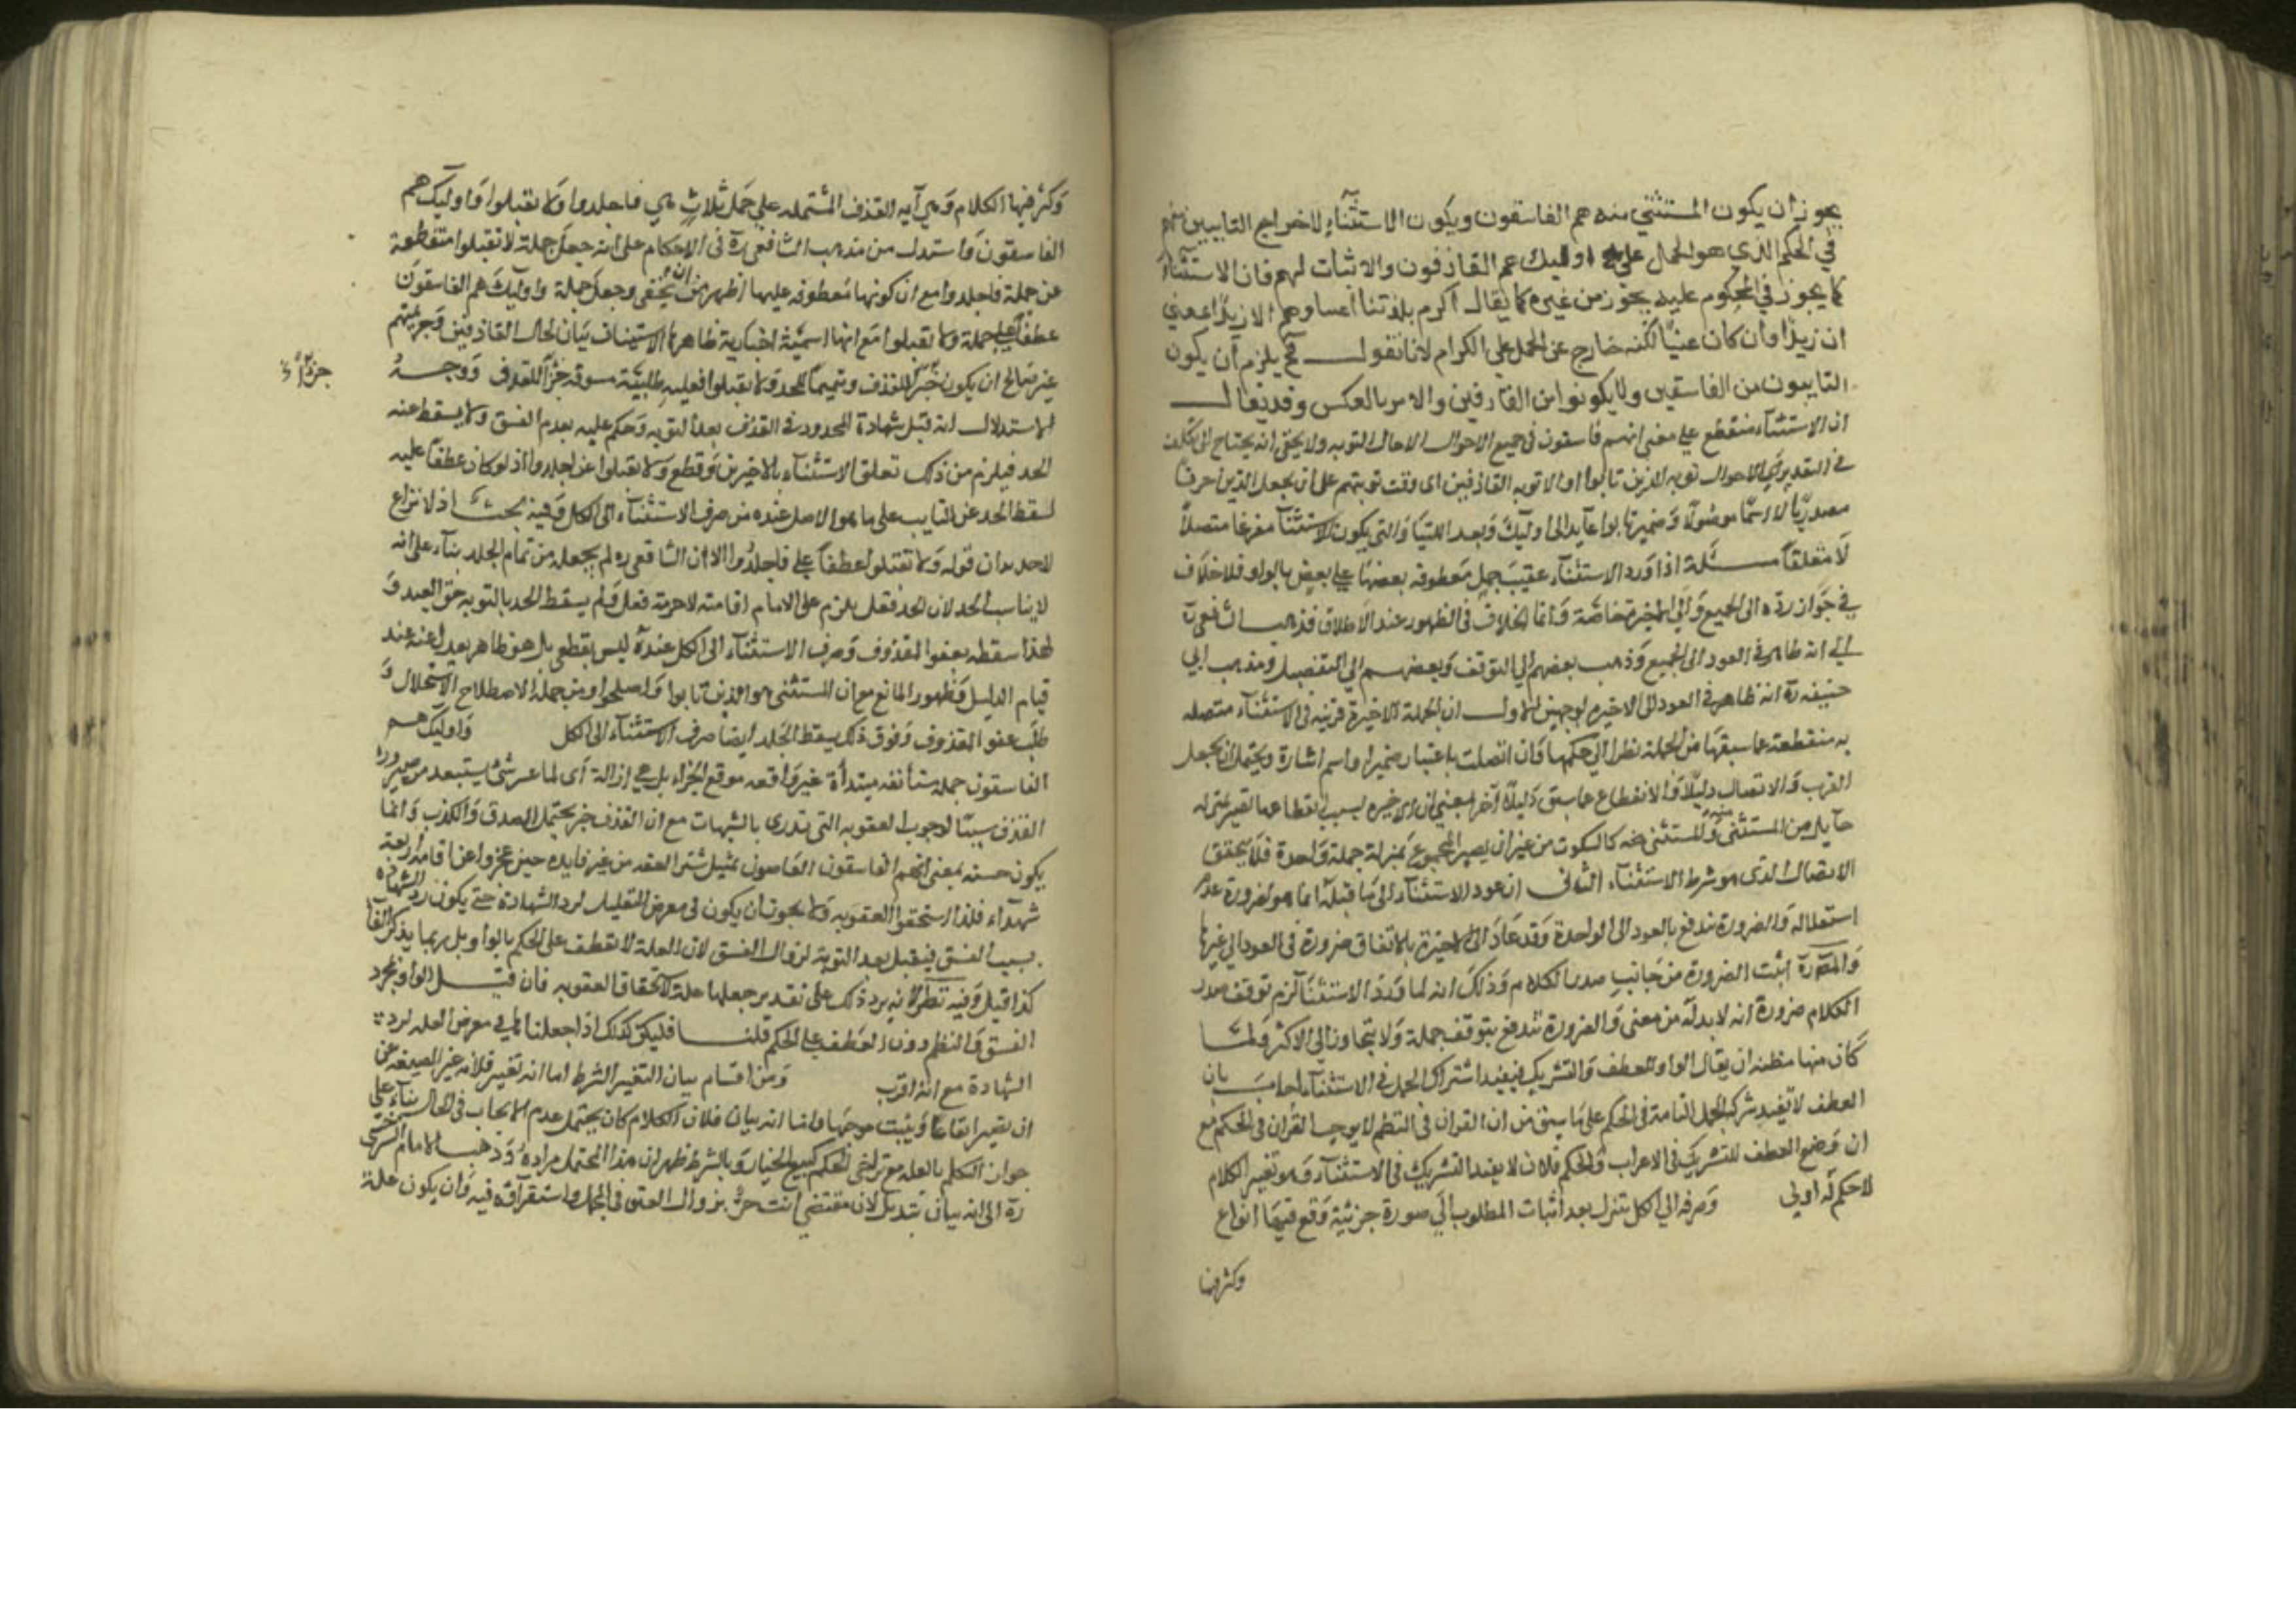 يجوز ان يكون المستثنى منه هم الفاسقون ويكون الاستثناء لاخراج التايبين منهم
في الحكم الذي هو الحمل على اوليك هم القاذفون والاثبات لهم فان الاستثناء
كما يجوز في المحكوم عليه يجوز من غيره كما يقال اكرم بلدتنا اغنياوهم الا زيدا بمعنى
ان زيدا وان كان غنيا لكنه خارج عن الحمل على الكرام لانا نقول فح يلزم ان يكون
التايبون من الفاسقين ولا يكونوا من القاذفين والامر بالعكس وقد يقال
ان الاستثناء منقطع على معنى انهم فاسقون في جميع الاحوال الاحال التوبه ولا يخفى انه يحتاج الى تكلف
في التقدير اي الاحوال توبه الذين تابوا او الا توبه القاذفين اى وقت توبتهم على ان يجعل الذين حرفا
مصدريا لا اسما موصولا وضمير تابوا عايد الى اوليك وبعد اللتيا والتي يكون الاستثنا مفرغا متصلا
لا منقطعا مسئلة اذا ورد الاستثناء عقيب جمل معطوفه بعضها على بعض بالواو فلا خلاف
في جواز رده الى الجميع والى الاخيرة خاصة وانما الخلاف في الظهور عند الاطلاق فذهب الشافعي رة
الى انه ظاهر في العود الى الجميع وذهب بعضهم الى التوقف وبعضهم الى التفصيل ومذهب ابي
حنيفه رة انه ظاهر في العود الى الاخيره لوجهين الاول ان الجملة الاخيرة قريبه في الاستثناء متصله
به منقطعة عما سبقها من الجملة نظرا الى حكمها وان اتصلت باعتبار ضمير او اسم اشارة ويحتمل ان يجعل
القرب والاتصال دليلا والانقطاع عما سبق دليلا آخر بمعنى ان الاخيره بسبب انقطاعها تصير بمنزله
حايل بين المستثنى والمستثنى منه كالسكوت من غير ان يصير المجموع بمنزلة جملة واحدة فلا يتحقق
الاتصال الذى هو شرط الاستثناء الثانى ان عود الاستثناء الى ما قبله انما هو لضرورة عدم
استقلاله والضرورة تندفع بالعود الى الواحدة وقد عاد الى الاخيرة بالاتفاق ضرورة في العود الى غيرها
والمص رة اثبت الضرورة من جانب صدر الكلام وذلك انه لما ورد الاستثنا لزم توقف صدر
الكلام ضرورة انه لا بد له من مغير والضرورة تندفع بتوقف جملة ولا يتجاوز الى الاكثر ولما
كان منها مظنه ان يقال الواو للعطف والتشريك فيفيد اشتراك الجمل في الاستثناء اجاب بان
العطف لا تفيد شركه الجمل التامة في الحكم على ما سبق من ان القران في النظم لا يوجب القران في الحكم مع
ان وضع العطف للتشريك في الاعراب والحكم فلان لا يفيد التشريك في الاستثناء وهو تغيير الكلام
لا حكم له اولى وصرفه الى الكل تنزل بعد اثبات المطلوب الى صورة جزئية وقع فيها انواع
وكثر فيها
وكثر فيها الكلام وهي آيه القذف المشتمله على جمل ثلاث هي فاجلدوا ولا تقبلوا واوليك هم
الفاسقون واستدل من مذهب الشافعي رة في الاحكام على انه جعل جملة لا تقبلوا منقطعة
عن جملة فاجلدوا مع ان كونها معطوفه عليها اظهر من ان يخفى وجعل جملة واوليك هم الفاسقون
عطفا على جملة ولا تقبلوا مع انها اسمية اخبارية ظاهرها الاستيناف بيان لحال القاذفين وجريمتهم
غير صالح ان يكون جزاء للقذف وتتميما للحد ولا تقبلوا فعليه طلبية مسوقه جزاء للقذف ووجه
جزاء
الاستدلال انه قبل شهادة المحدود في القذف بعد التوبه وحكم عليه بعدم الفسق ولا يسقط عنه
الحد فيلزم من ذلك تعلق الاستثناء بالاخيرين وقطع ولا تقبلوا عن اجلدوا اذ لو كان عطفا عليه
لسقط الحد عن التايب على ما هو الاصل عنده من صرف الاستثناء الى الكل وفيه بحث اذ لا نزاع
لاحد في ان قوله ولا تقبلوا عطفا على فاجلدوا الا ان الشافعى ره لم يجعله من تمام الحد بناء على انه
لا يناسب الحد لان الحد فعل يلزم على الامام اقامته لاحرمة فعل ولم يسقط الحد بالتوبه حق العبد و
لهذا سقطه بعفو المقذوف وصرف الاستثناء الى الكل عنده ليس بقطعى بل هو ظاهر يعدل عنه عند
قيام الدليل وظهور المانع مع ان المستثنى هو الذين تابوا واصلحوا ومن جملة الاصطلاح الاستحلال و
طلب عفو المقذوف وفوق ذلك يسقط الجلد ايضا صرف الاستثناء الى الكل واوليك هم
الفاسقون جملة مستأنفه مبتدأة غير واقعه موقع الجزاء بل هي ازالة اى لما عسى شى يستبعد من صيرورة
القذف سببا لوجوب العقوبه التى تدرى بالشبهات مع ان القذف خبر يحتمل الصدق والكذب وانما
يكون حسنه بمعنى انهم الفاسقون العاصون بمثيل ستر العفه من غير فايده حين عجزوا عن اقامة اربعة
شهداء فلذا استحقوا العقوبه ولا يجوز ان يكون في معرض التعليل لرد الشهادة حتى يكون رد الشهادة
بسبب الفسق فيقبل بعد التوبة لزوال الفسق لان العلة لا تعطف على الحكم بالواو بل ربما يذكر بالفا
كذا قيل وفيه نظر لانه يرد ذلك على تقدير جعلها علة لاستحقاق العقوبه فان قيل الواو لمجرد
النسق والنظم دون العطف على الحكم قلنا فليكن كذلك اذا جعلناها في معرض العله لرد
الشهادة مع انه اقرب ومن اقسام بيان التغيير الشرط اما انه تغيير فلانه غير الصيغه عن
ان تصير ايقاعا ويثبت موجبها واما انه بيان فلان الكلام كان يحتمل عدم الايجاب في الحال بناء على
جواز التكلم بالعله مع تراخي الحكم كبيع الخيار وبالشرط ظهر ان هذا المحتمل مراده وذهب الامام السرخسى
رة الى انه بيان تبديل لان مقتضى انت حر نزول العتق في المحل واستقراره فيه وان يكون علة